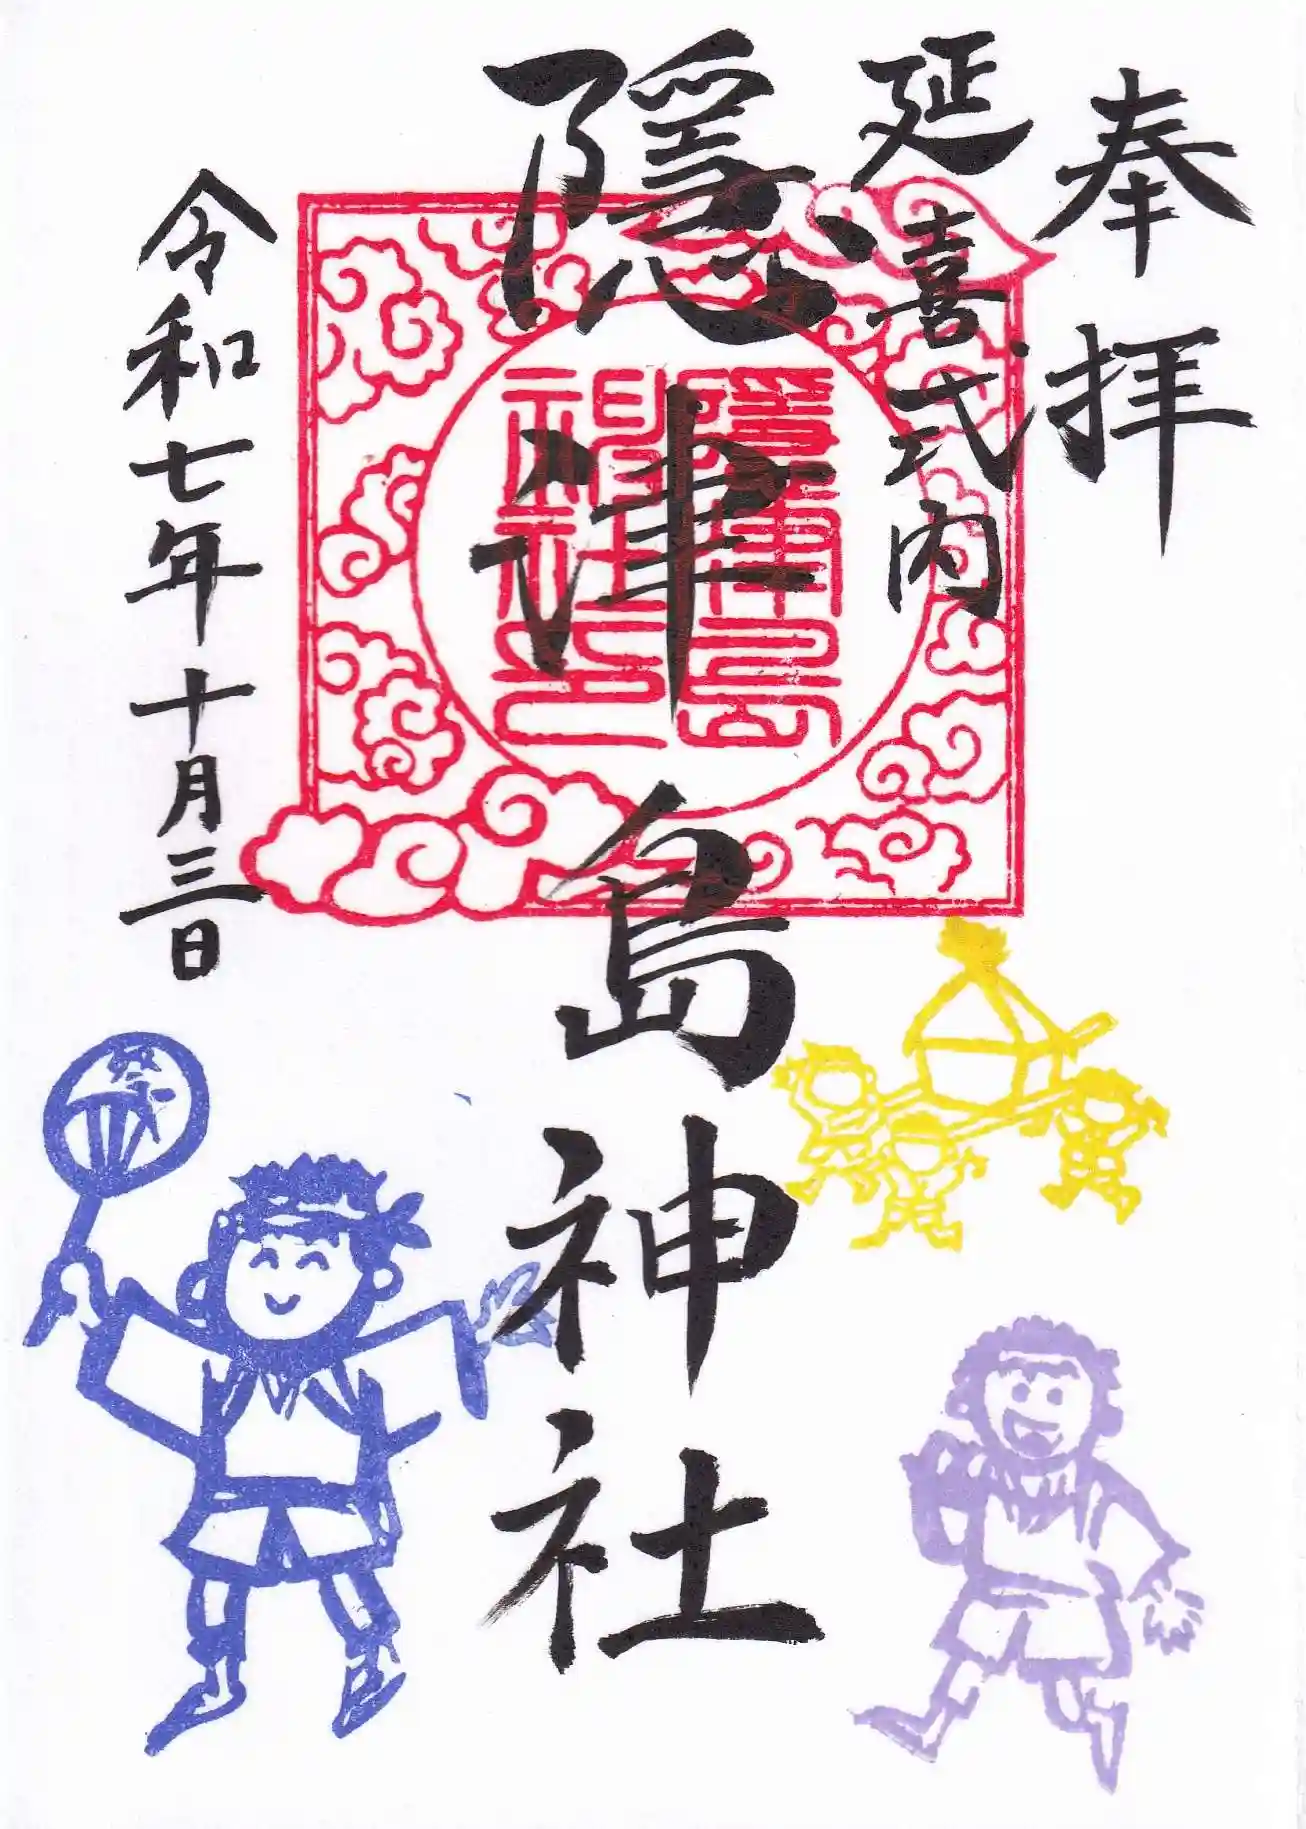 奉拝
延喜式内
隠津島神社
隠津島
神社印
令和七年十月三日
祭